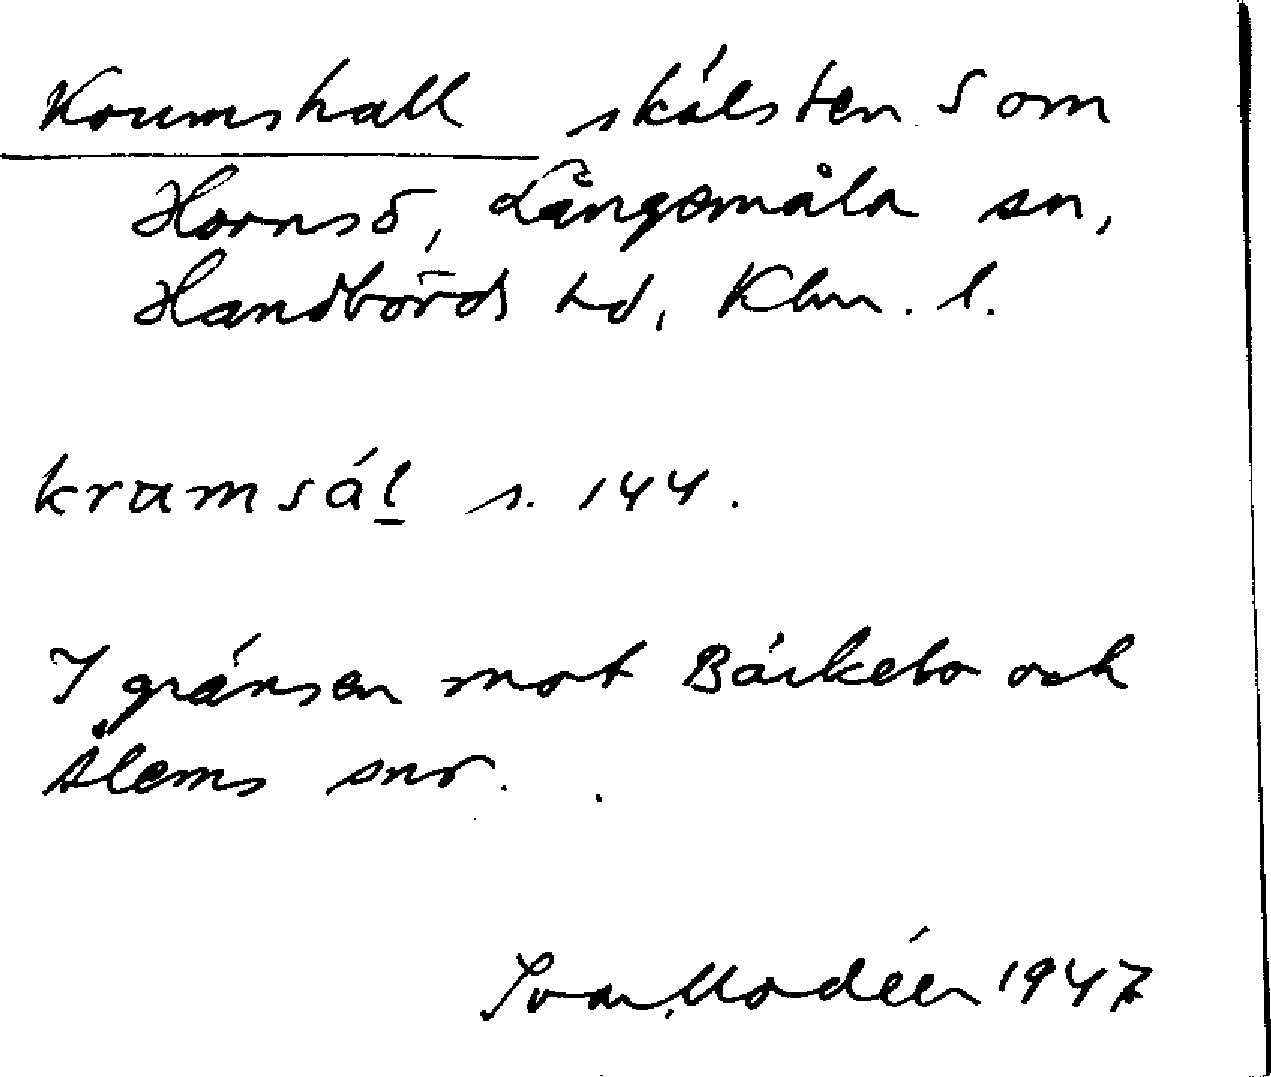 Krumshall skälsten S om
Hornsö, Långemåla sn,
Handbörds hd, Klm. l.
krumsál s. 144.
I gränsen mot Bäckebo och
Ålems snr.
Ivar Modéer 1947